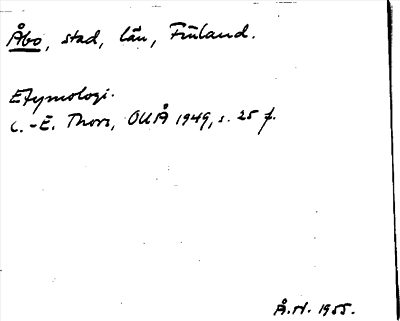 Åbo, stad, län, Finland.
Etymologi.
C.-E. Thors, OUÅ 1949, s. 25 f.
Å.H. 1955.